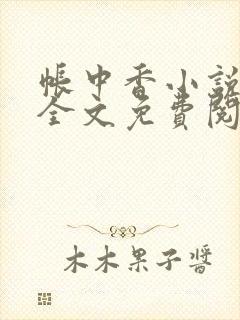 帳中香小說
全文免費閱
木木果子醬